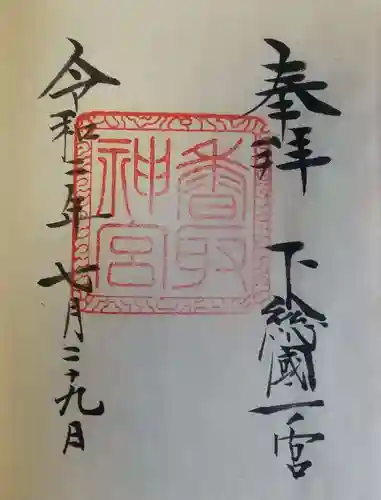 奉拝 下総國一宮
香取神宮
令和二年七月二十九日